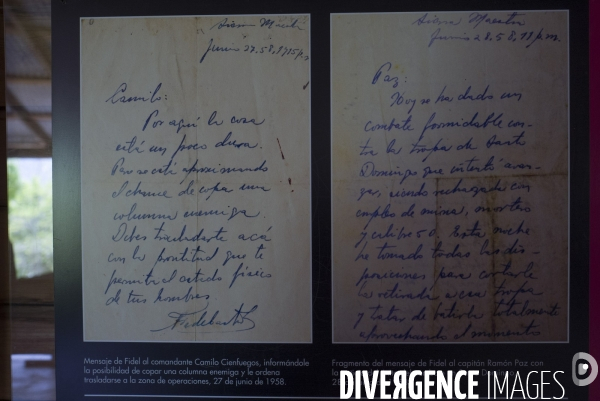 Sierra Maestra
Junio 27.58, 1715 p.m
Camilo:
Por aquí la cosa
está un poco dura.
Pero se está aproximando
el chance de copar una
columna enemiga.
Debes trasladarte acá
con la prontitud que te
permita el estado físico
de tus hombres
Fidel Castro
Mensaje de Fidel al comandante Camilo Cienfuegos, informándole
la posibilidad de copar una columna enemiga y le ordena
trasladarse a la zona de operaciones, 27 de junio de 1958.
Sierra Maestra
Junio 28.58, p.m.
Paz:
Hoy se ha dado un
combate formidable con-
tra la tropa de Santo
Domingo que intentó avan-
zar, siendo rechazada con
empleo de minas, mortero
y calibre 50. Esta noche
he tomado todas las dis-
posiciones para cortarle
la retirada a esa tropa
y tratar de batirla totalmente
aprovechando el momento
Fragmento del mensaje de Fidel al capitán Ramón Paz con
DIVERGENCE IMAGES